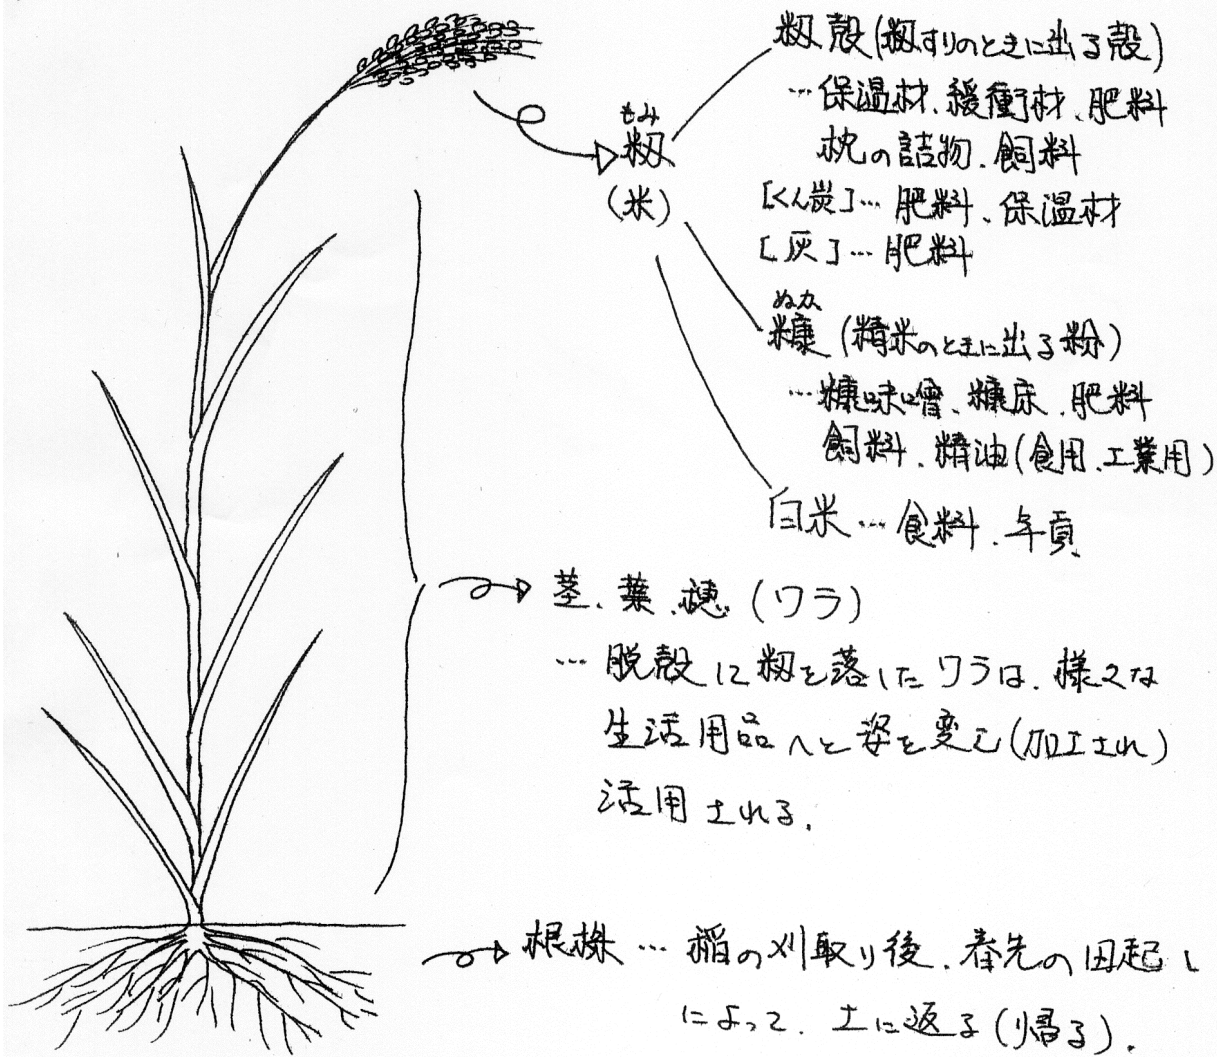 籾殻(籾すりのときに出る殻)
…保温材、緩衝材、肥料
枕の詰物、飼料
[くん炭]…肥料、保温材
[灰]…肥料
もみ
籾
(米)
ぬか
糠(精米のときに出る粉)
…糠味噌、糠床、肥料
飼料、精油(食用、工業用)
白米…食料、年貢
茎、葉、穂(ワラ)
…脱穀に籾を落したワラは、様々な
生活用品へと姿を変え(加工され)
活用される。
根株…稲の刈取り後、春先の田起し
によって、土に返る(帰る)。